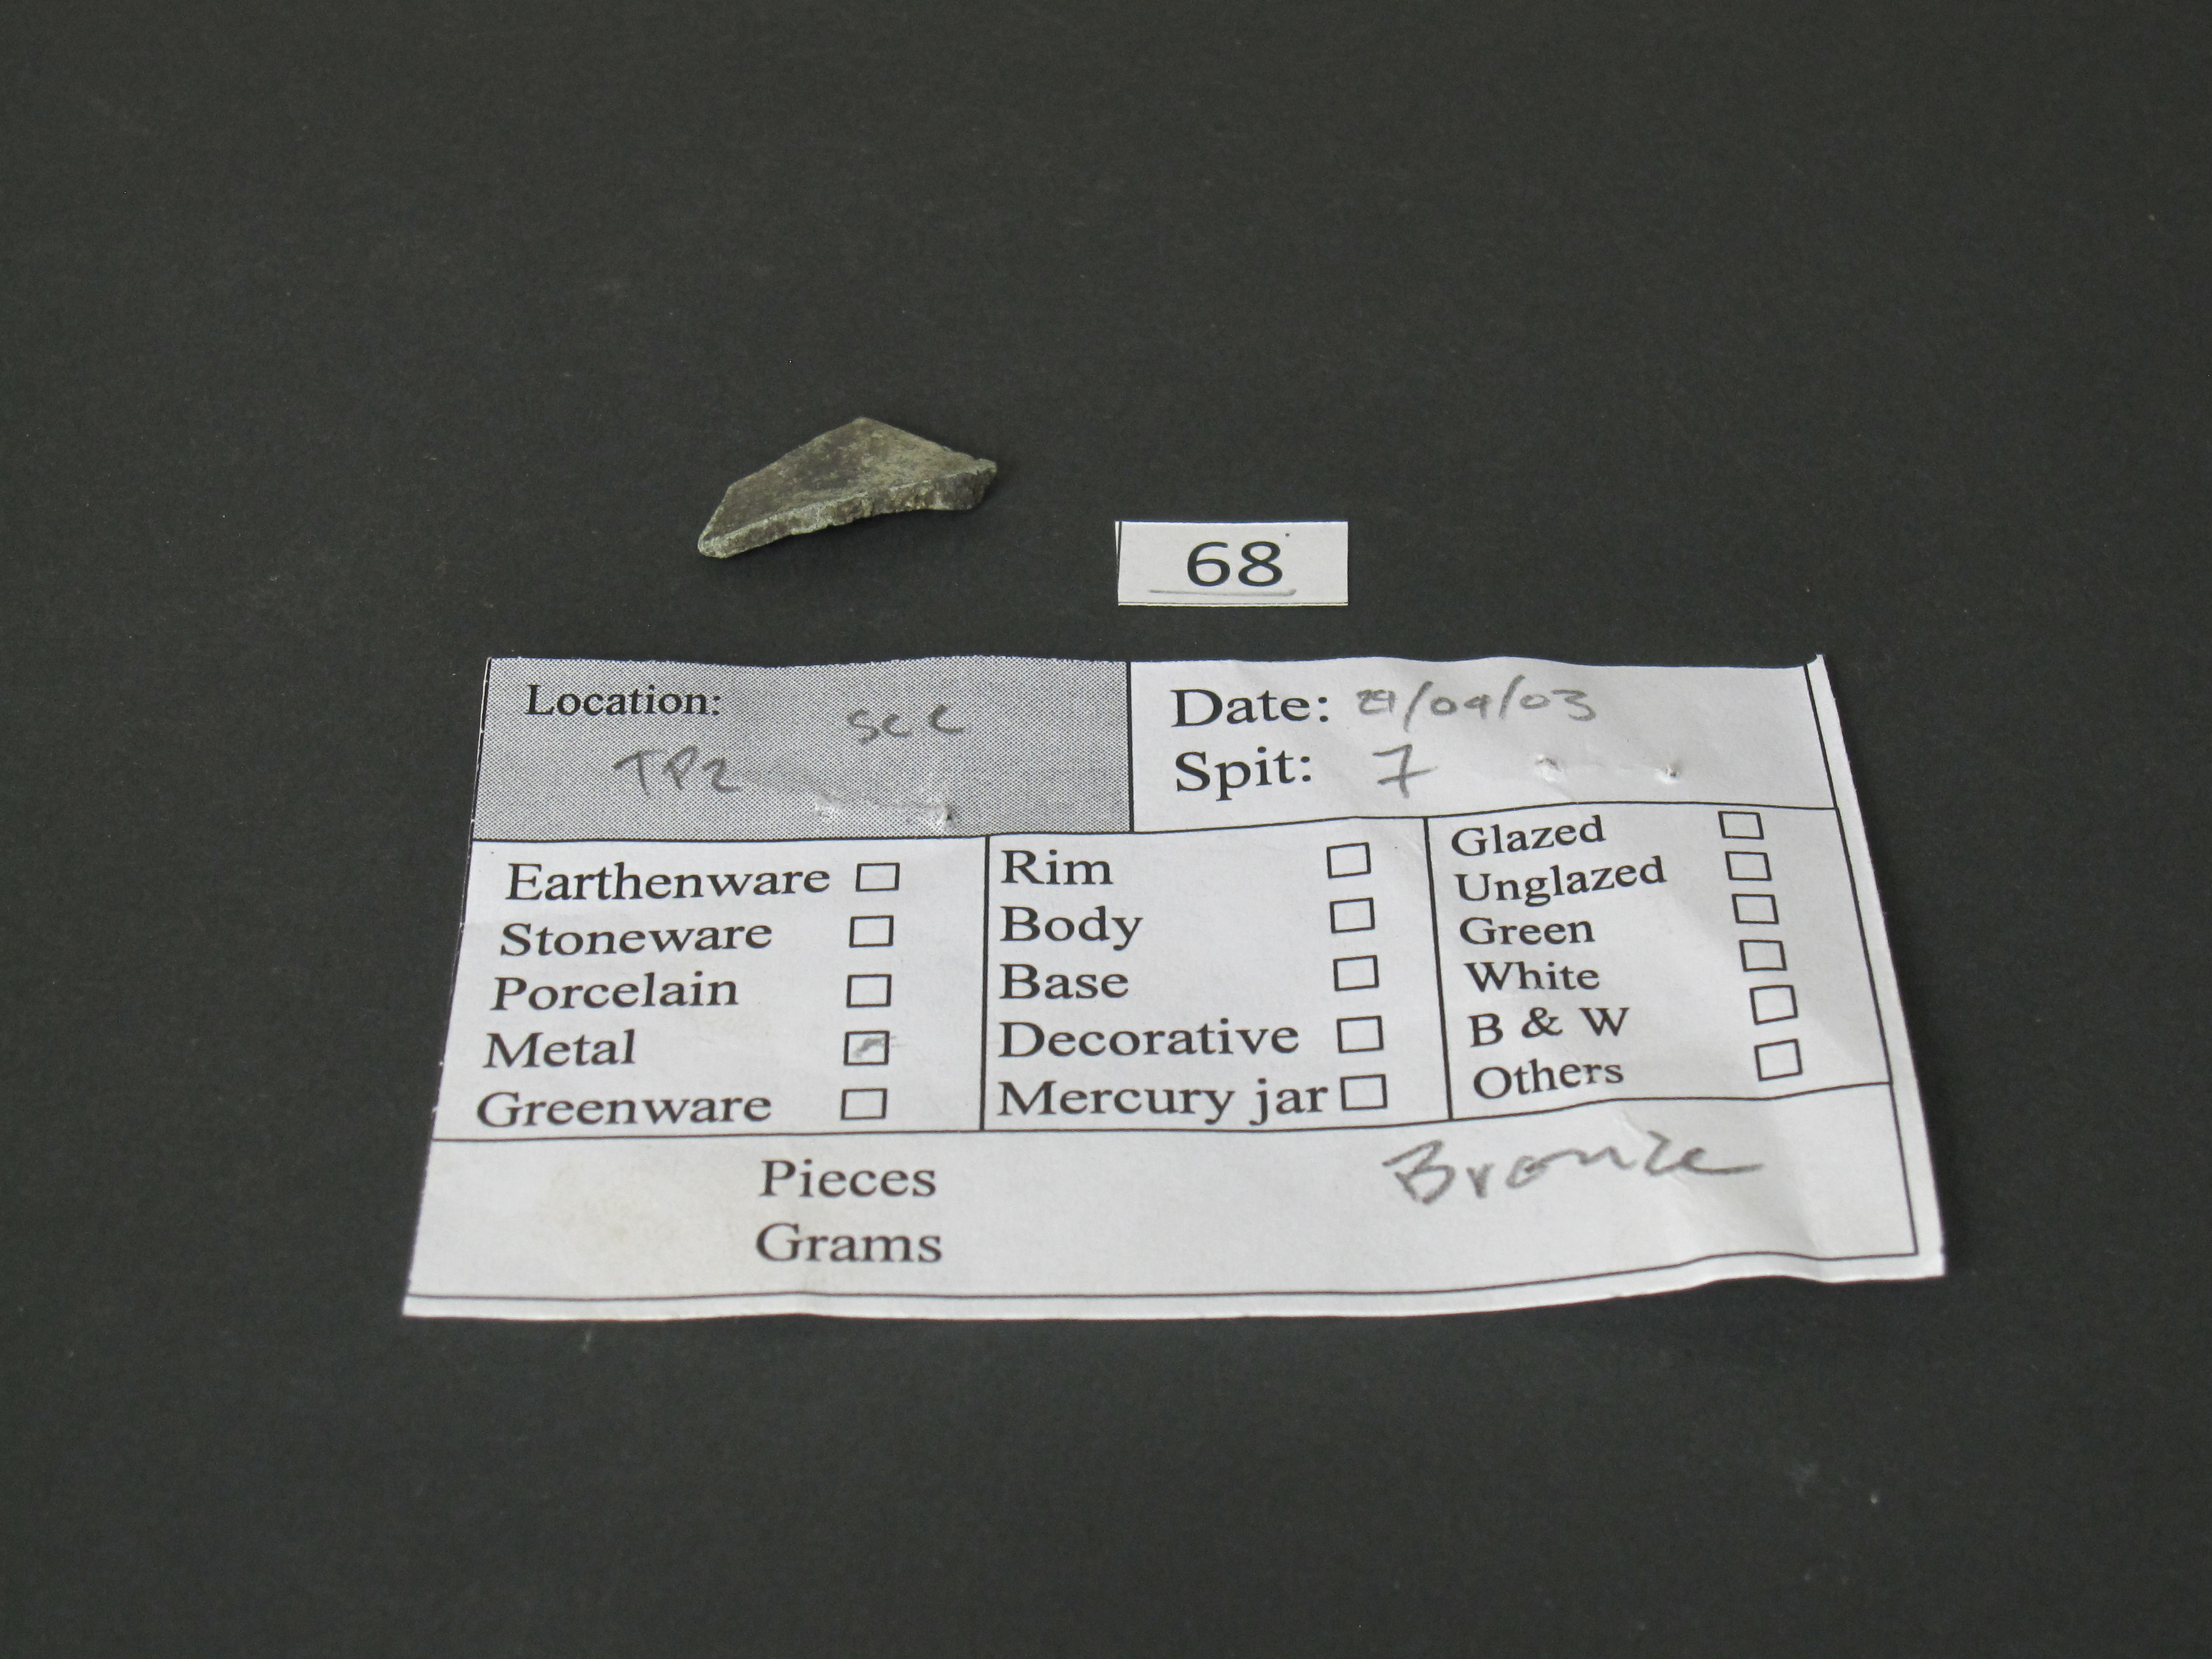 68
Location: scc
TP2
Date: 29/04/03
Spit: 7
Earthenware
Stoneware
Porcelain
Metal
Greenware
Rim
Body
Base
Decorative
Mercury jar
Glazed
Unglazed
Green
White
B & W
Others
Pieces
Grams
Bronze